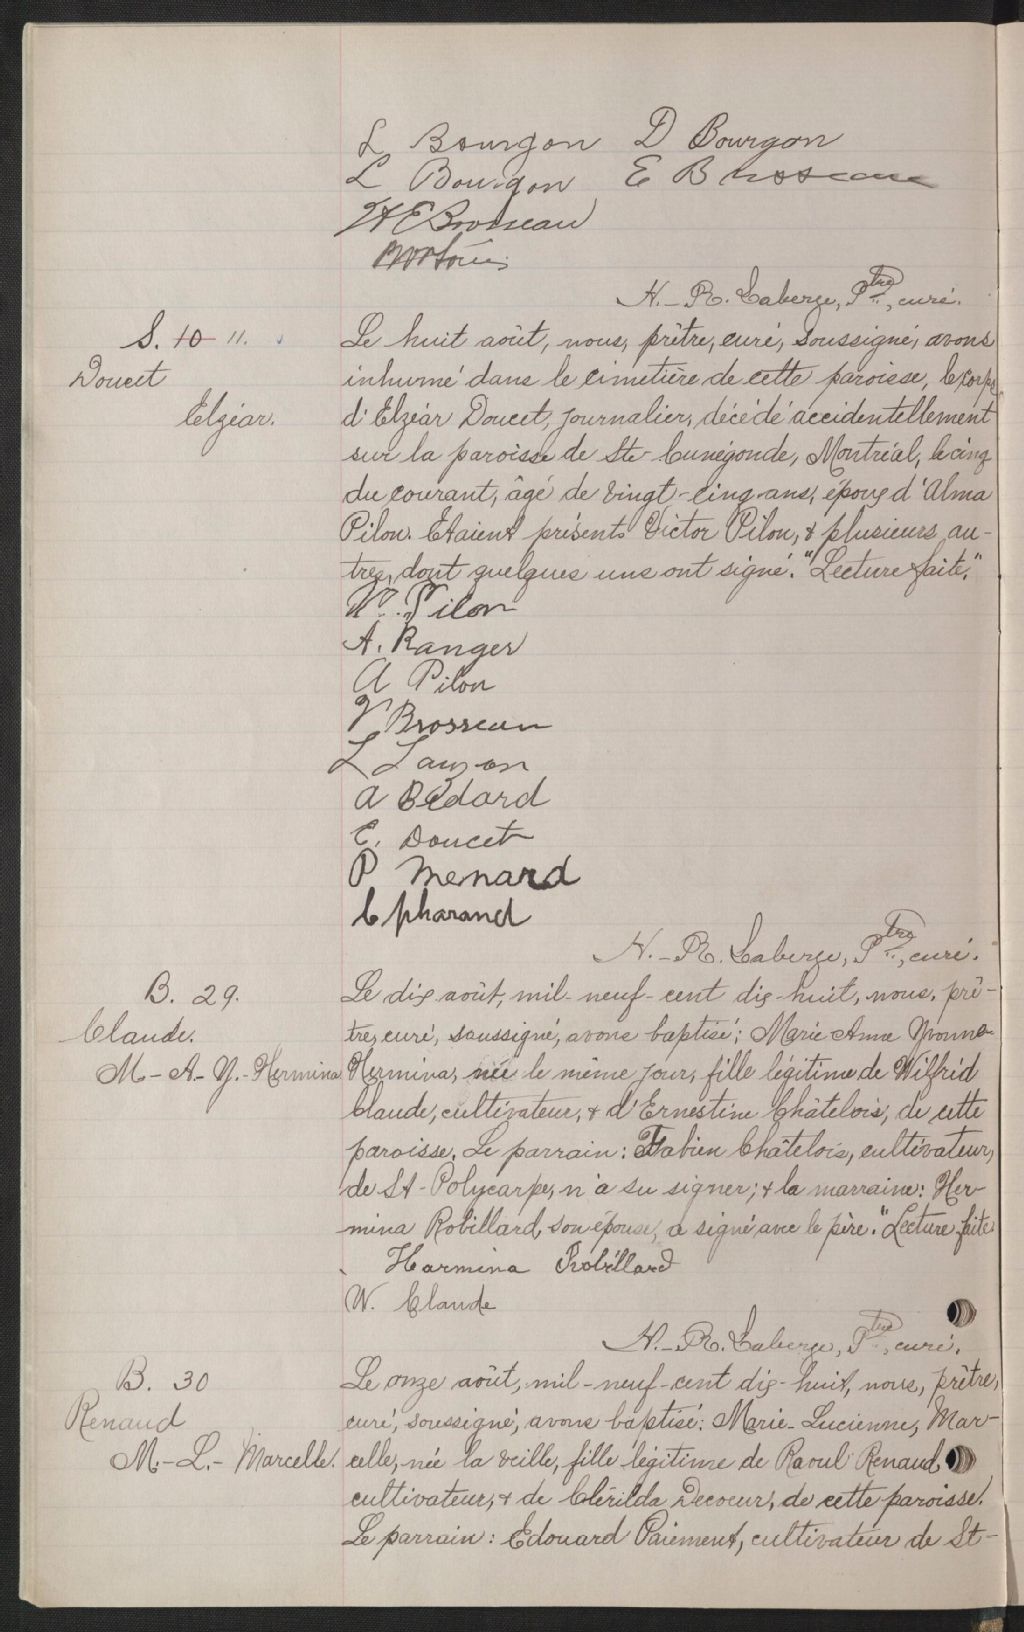 L Bourgon D Bourgon
L Bourgon E Brosseau
H E Brosseau
H.-R. Laberge, Ptre, curé.
S. 10 11. Le huit août, nous, prêtre, curé, soussigné, avons
Doucet inhumé dans le cimetière de cette paroisse, le corps
Elzéar. d'Elzéar Doucet, journalier, décédé accidentellement
sur la paroisse de Ste-Cunégonde, Montréal, le cinq
du courant, âgé de vingt-cinq-ans, époux d'Alma
Pilon. Etaient présents Victor Pilon, & plusieurs au-
tres, dont quelques uns ont signé. "Lecture faite."
V. Pilon
A. Ranger
A Pilon
V Brosseau
L Lauzon
A Bédard
E. Doucet
P Menard
C pharand
H.-R. Laberge, Ptre, curé.
B. 29. Le dix août, mil-neuf-cent dix-huit, nous, prê-
Claude. tre, curé, soussigné, avons baptisé: Marie Anna Yvonne
M-A-Y.-Hermina Hermina, née le même jour, fille légitime de Wilfrid
Claude, cultivateur, & d'Ernestine Châtelois, de cette
paroisse. Le parrain: Fabien Châtelois, cultivateur,
de St-Polycarpe, n'a su signer; & la marraine: Her-
mina Robillard, son épouse, a signé avec le père. "Lecture faite
Harmina Robillard
W. Claude
H.-R. Laberge, Ptre, curé.
B. 30 Le onze août, mil-neuf-cent dix-huit, nous, prêtre,
Renaud curé, soussigné, avons baptisé: Marie-Lucienne, Mar-
M.-L.-Marcelle. celle, née la veille, fille légitime de Raoul Renaud,
cultivateur, & de Clérilda Decoeur, de cette paroisse.
Le parrain: Edouard Paiement, cultivateur de St-